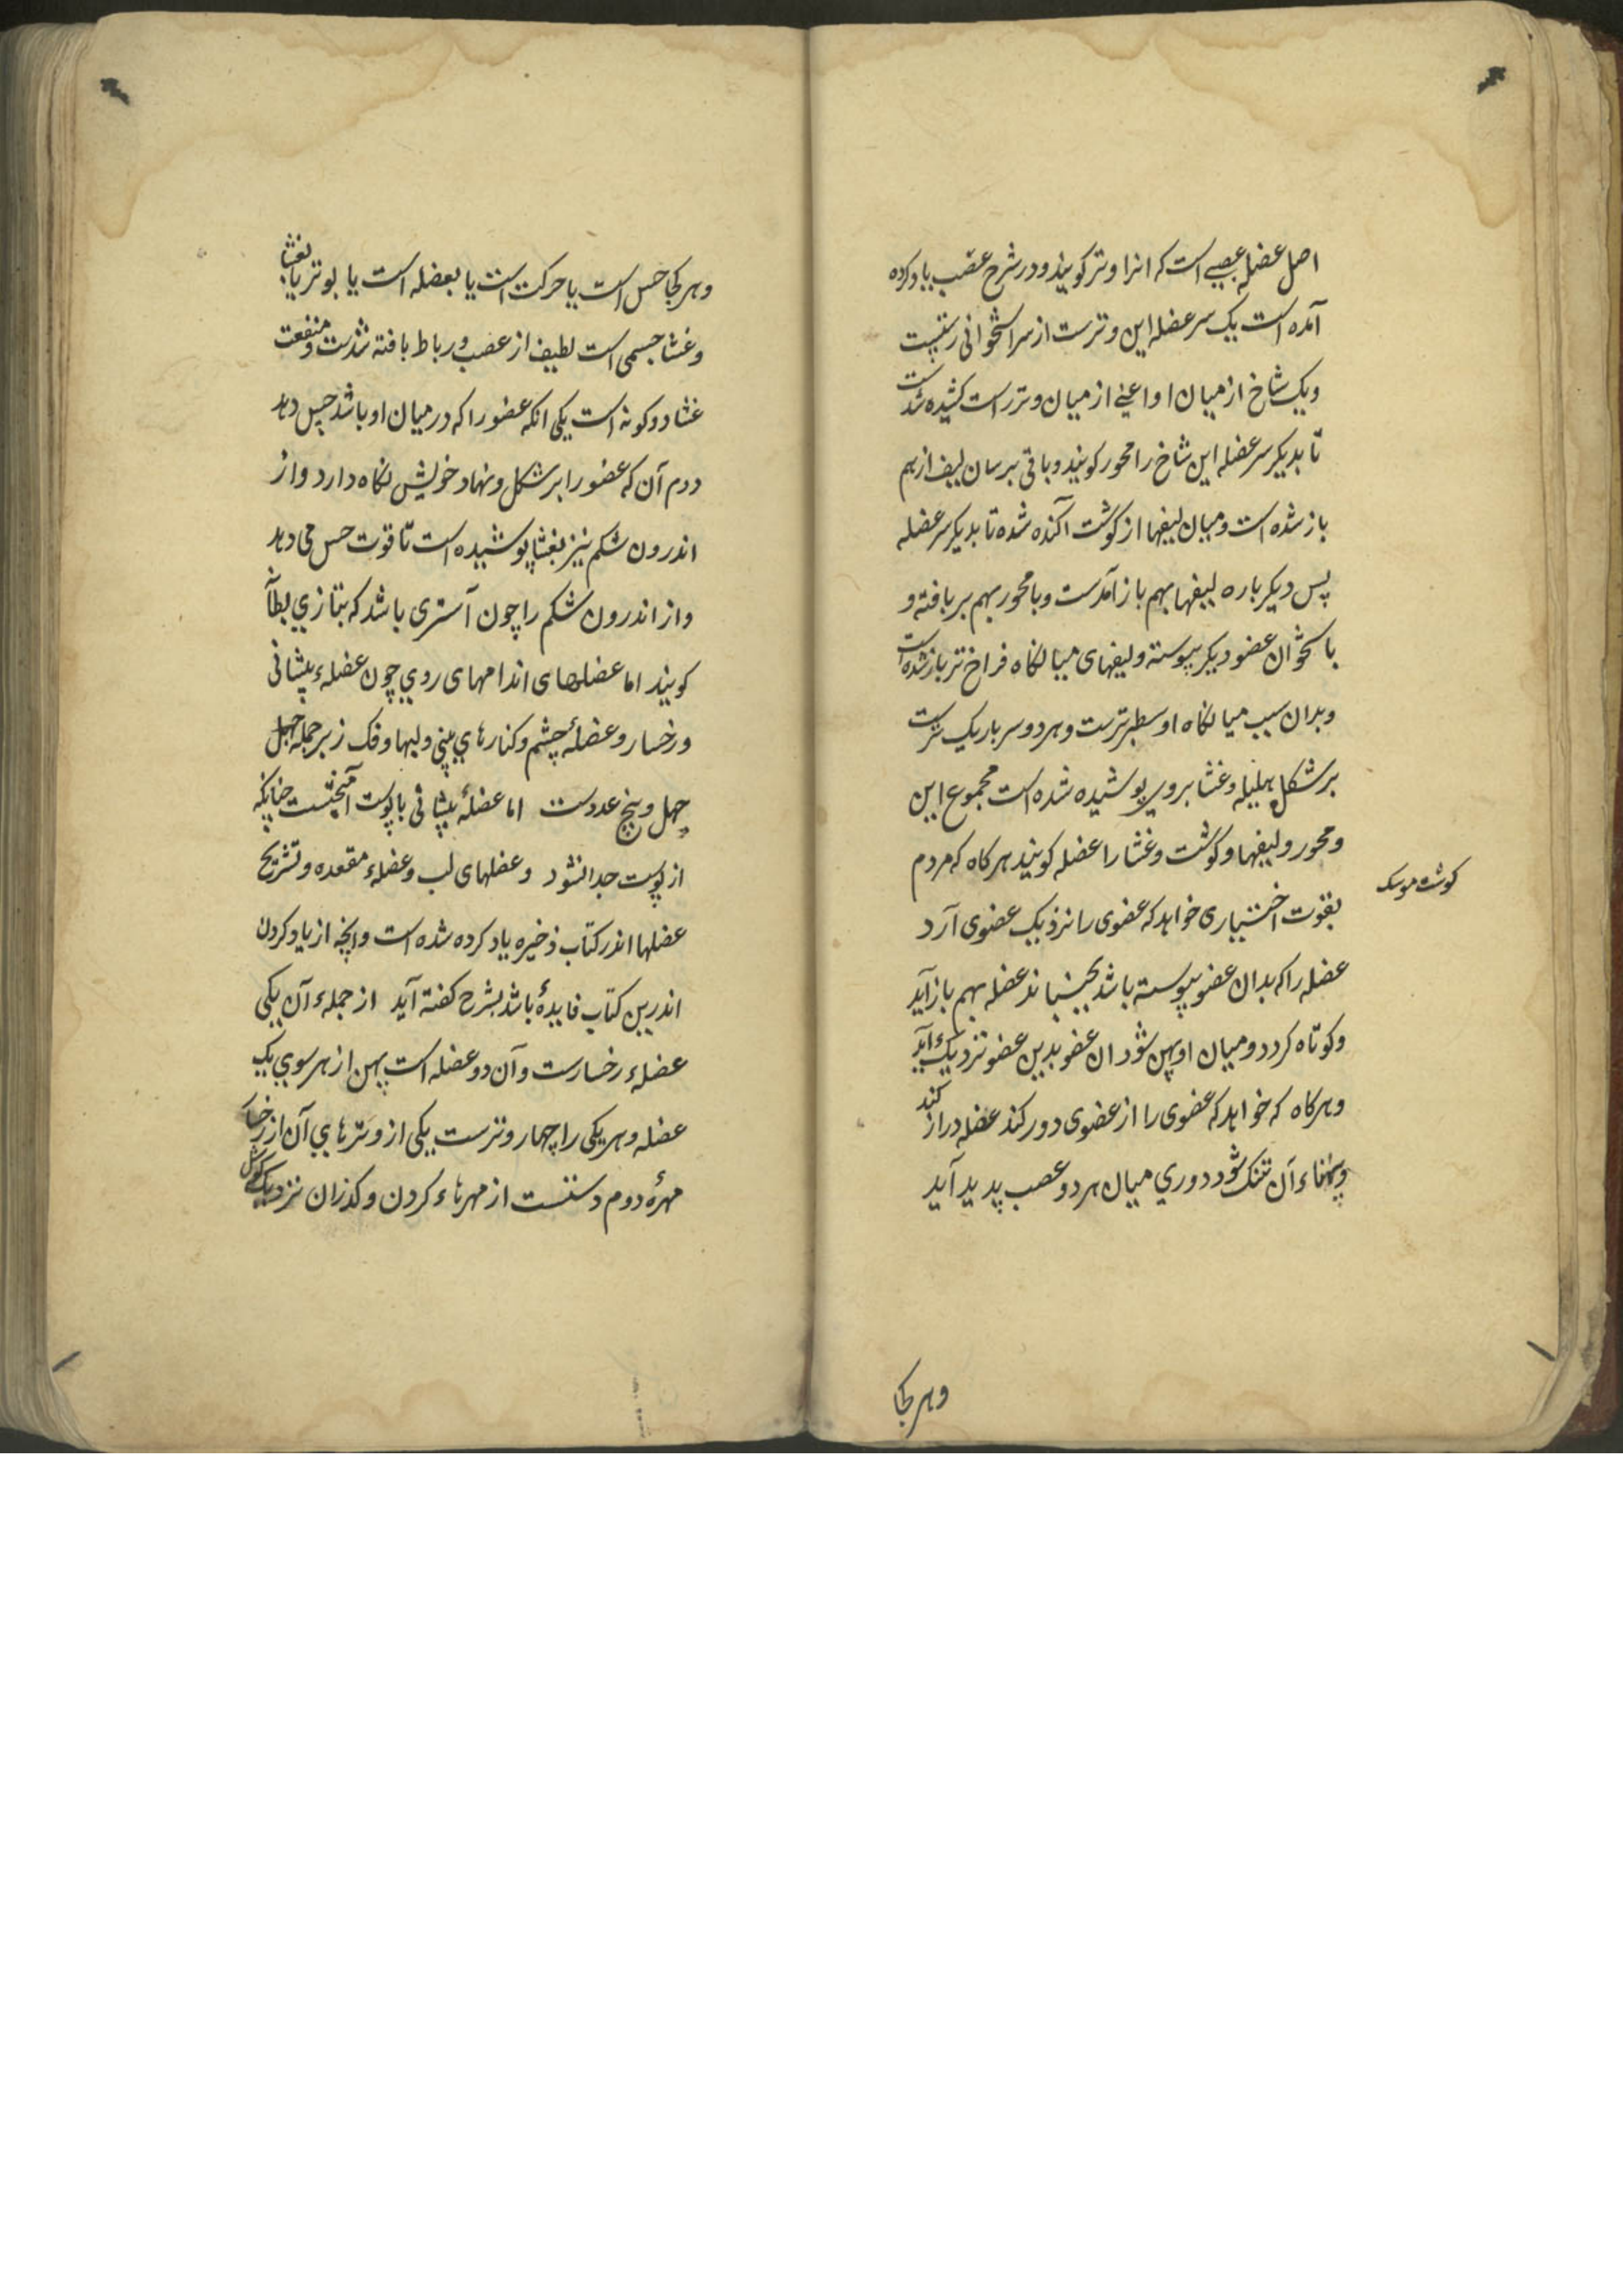 اصل عضله عصبی است که انرا وتر کویند و در شرح عصب یاد کرده
آمده است یک سر عضله این وترست از سر استخوانی رستست
ویک شاخ از میان او اعنی از میان وتر راست کشیده شدست
تا بدیکر سر عضله این شاخ را محور کویند و باقی برسان لیف از هم
باز شده است و میان لیفها از کوشت آکنده شده تا بدیکر سر عضله
پس دیکر باره لیفها بهم باز آمدست و با محور بهم بر بافته و
با ستخوان عضو دیکر پیوسته و لیفهای میانکاه فراخ تر باز شده است
و بدان سبب میانکاه او سطبرترست و هر دو سر باریک ترست
بر شکل هلیله و غشا بروی پوشیده شده است مجموع این
و محور و لیفها و کوشت و غشا را عضله کویند هر کاه که مردم
بقوت اختیاری خواهد که عضوی را نزدیک عضوی آرد
عضله را که بدان عضو پیوسته باشد بجنباند عضله بهم باز آید
و کوتاه کردد و میان او پهن شود ان عضو بدین عضو نزدیک آید
و هرکاه که خواهد که عضوی را از عضوی دور کند عضله دراز کند
و پهناء آن تنک شود دوری میان هر دو عصب پدید آید
کوشت موسک
و هر کجا
و هر کجا حس است یا حرکت است یا بعضله است یا بوتر یا بغشا
و غشا جسمی است لطیف از عصب و رباط بافته شدست و منفعت
غشا دو کونه است یکی انکه عضو را که در میان او باشد حس دهد
دوم آن که عضو را بر شکل و نهاد خویش نکاه دارد و از
اندرون شکم نیز بغشا پوشیده است تا قوت حس می دهد
و از اندرون شکم را چون آستری باشد که بتازی بطانه
کویند اما عضلهای اندامهای روی چون عضلهء پیشانی
و رخسار و عضلهٔ چشم و کنارهای بینی و لبها و فک زیر جمله چهل
چهل و پنج عددست اما عضلهٔ پیشانی با پوست آمیختست چنانکه
از پوست جدا نشود و عضلهای لب و عضلهء مقعده و تشریح
عضلها اندر کتاب ذخیره یاد کرده شده است و انچه از یاد کردن
اندرین کتاب فایدهٔ باشد بشرح کفته آید از جملهء آن یکی
عضلهء رخسارست و آن دو عضله است پهن از هر سوی یک
عضله و هر یکی را چهار وترست یکی از وترهای آن از رخسار
مهرهٔ دوم دستست از مهرهاء کردن و کذران نزدیک کوش